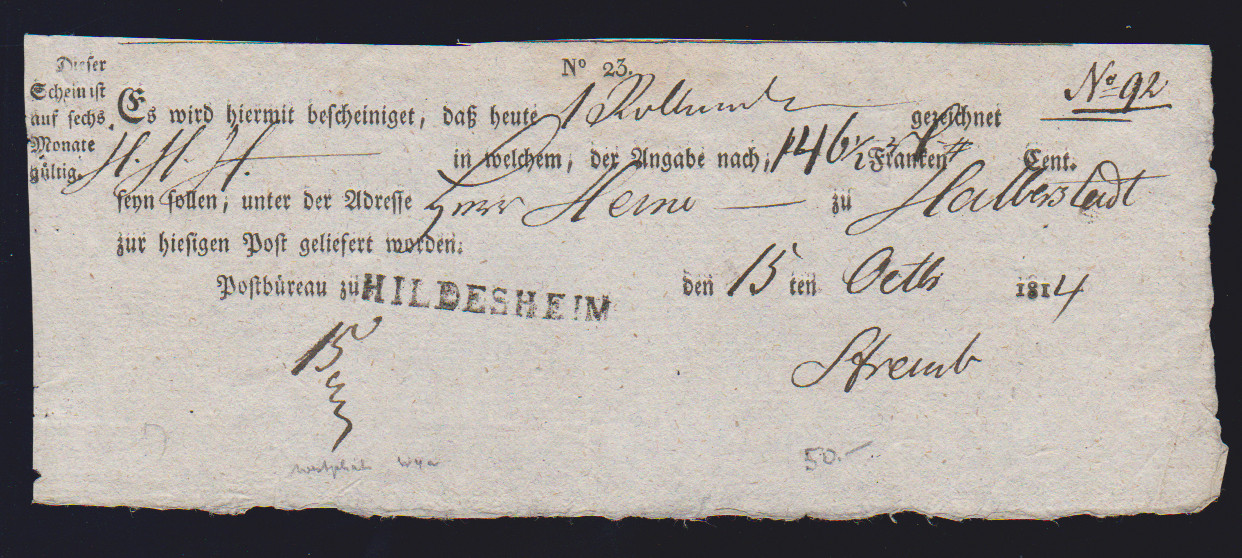 No 23.
No 92
Dieser
Schein ist
auf sechs
Monate
gültig.
Es wird hiermit bescheiniget, daß heute 1 gezeichnet
H. H. in welchem, der Angabe nach, 146 Franken Cent.
seyn sollen, unter der Adresse Herr Heine zu Halberstadt
zur hiesigen Post geliefert worden.
Postbüreau zu HILDESHEIM den 15 ten Octb 1814
15
50.-